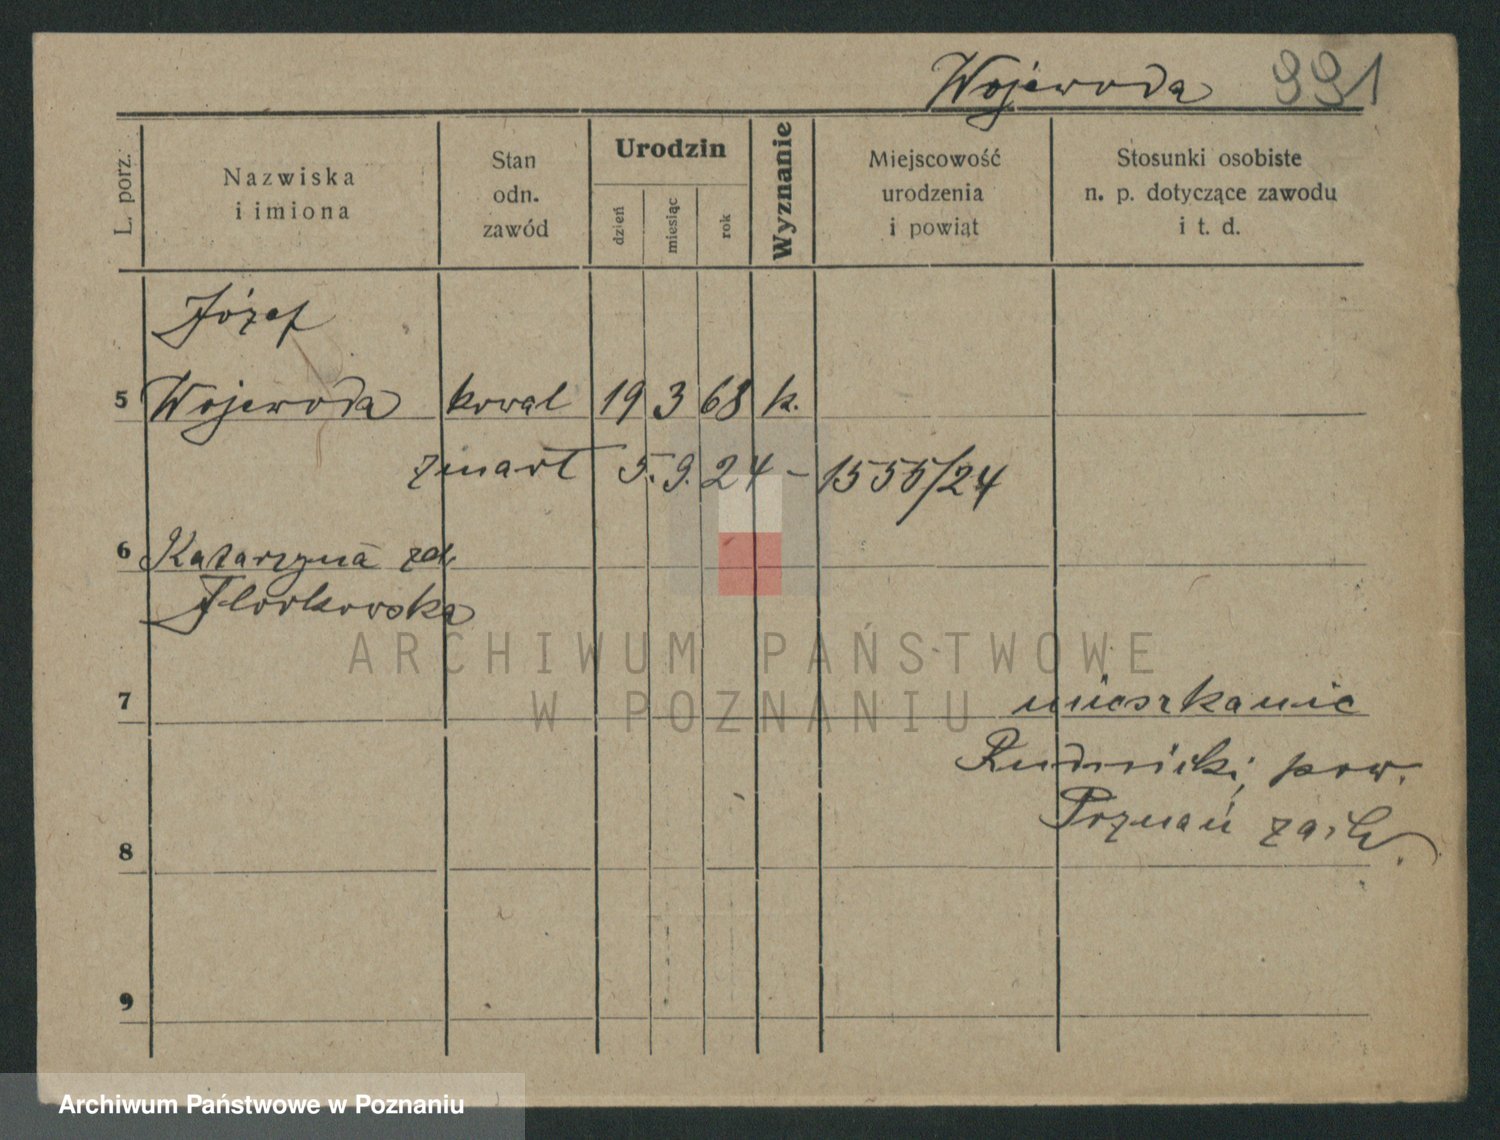 Wojewoda 991
L. porz.
Nazwiska
i imiona
Stan
odn.
zawód
Urodzin
dzień
miesiąc
rok
Wyznanie
Miejscowość
urodzenia
i powiąt
Stosunki osobiste
n. p. dotyczące zawodu
i t. d.
Józef
5 Wojewoda kowal 19 3 68 k.
zmarł 5. 9. 24 – 1555/24
6 Katarzyna zd.
Florkowska
7 mieszkanie
Rudnicki, pow.
Poznań zach.
8
9
ARCHIWUM PAŃSTWOWE
W POZNANIU
Archiwum Państwowe w Poznaniu